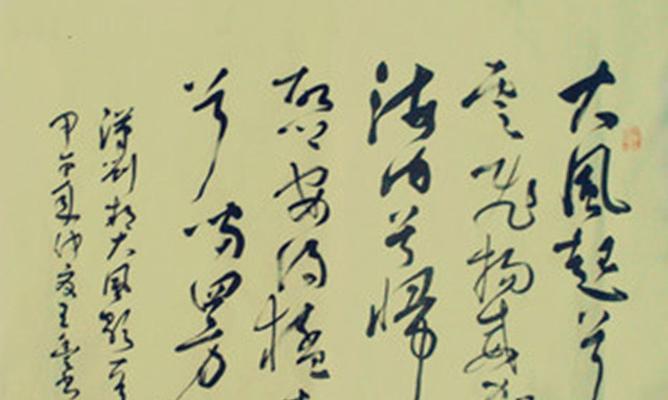 大風起兮
雲飛揚威加
海内兮歸
故鄉安得猛
兮守四方
漢劉邦大風歌一首
甲午夏仲